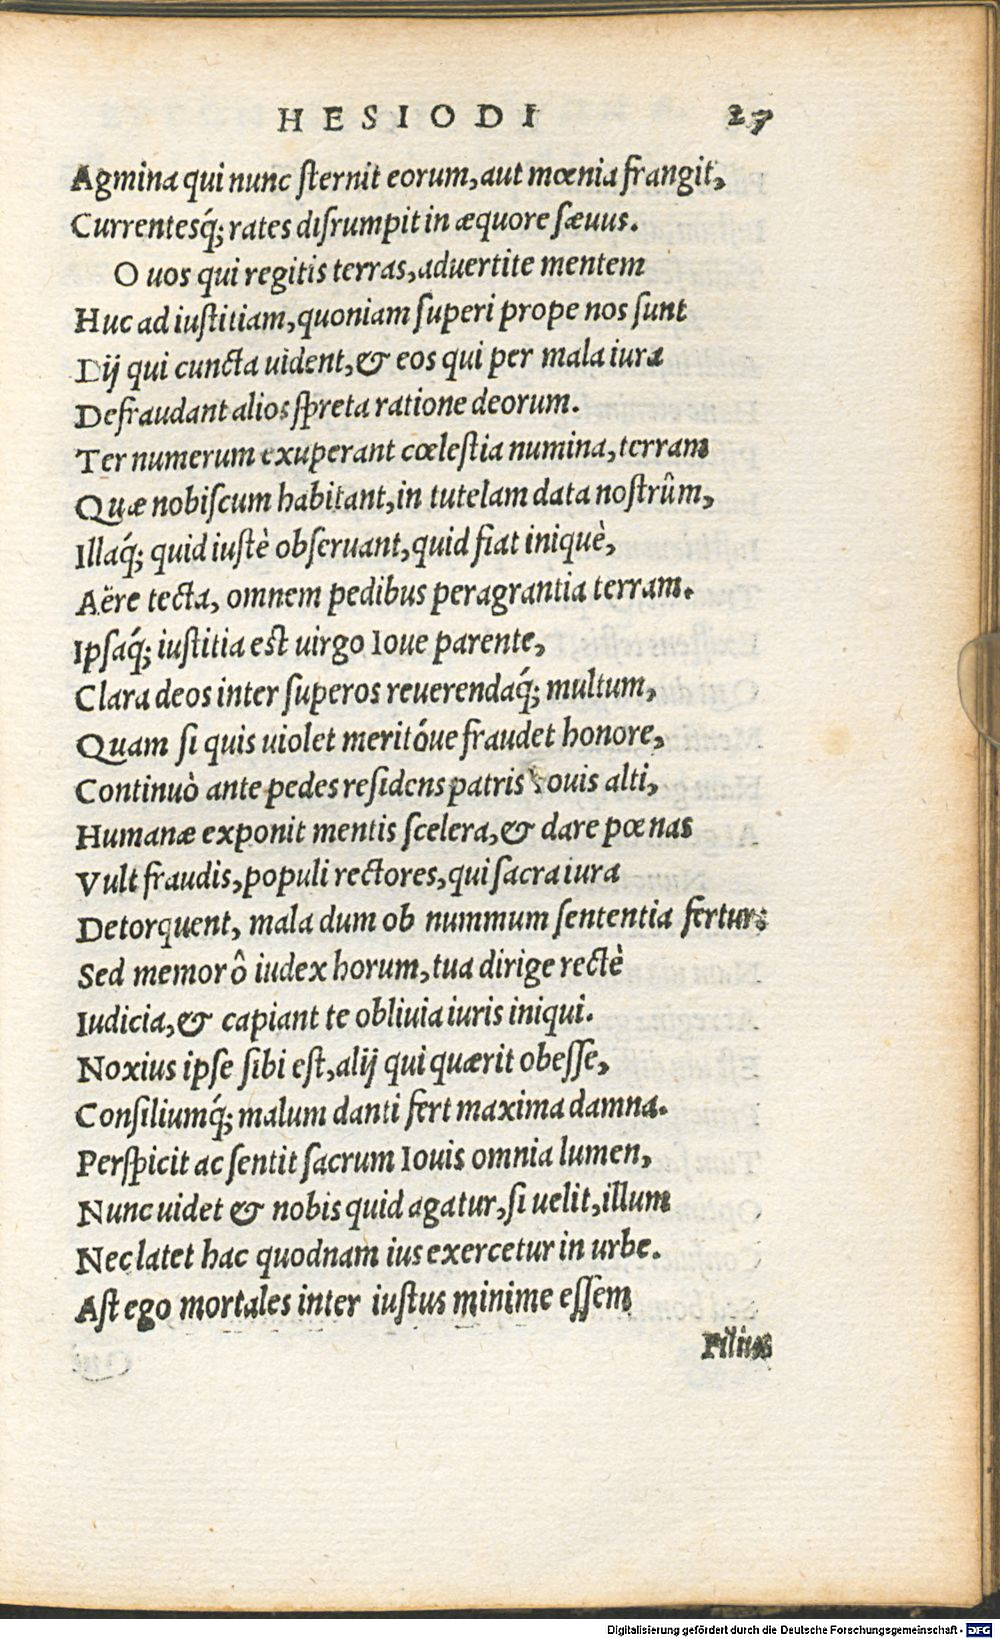 HESIODI 27
Agmina qui nunc ſternit eorum, aut mœnia frangit,
Currentesq́; rates diſrumpit in æquore ſæuus.
O uos qui regitis terras, aduertite mentem
Huc ad iuſtitiam, quoniam ſuperi prope nos ſunt
Dij qui cuncta uident, & eos qui per mala iura
Defraudant alios ſpreta ratione deorum.
Ter numerum exuperant cœleſtia numina, terram
Quæ nobiſcum habitant, in tutelam data noſtrûm,
Illaq́; quid iuſtè obſeruant, quid fiat iniquè,
Aëre tecta, omnem pedibus peragrantia terram.
Ipſaq́; iuſtitia eſt uirgo Ioue parente,
Clara deos inter ſuperos reuerendaq́; multum,
Quam ſi quis uiolet meritóue fraudet honore,
Continuò ante pedes reſidens patris Iouis alti,
Humanæ exponit mentis ſcelera, & dare pœnas
Vult fraudis, populi rectores, qui ſacra iura
Detorquent, mala dum ob nummum ſententia fertur:
Sed memor ô iudex horum, tua dirige rectè
Iudicia, & capiant te obliuia iuris iniqui.
Noxius ipſe ſibi eſt, alij qui quærit obeſſe,
Conſiliumq́; malum danti fert maxima damna.
Perſpicit ac ſentit ſacrum Iouis omnia lumen,
Nunc uidet & nobis quid agatur, ſi uelit, illum
Nec latet hac quodnam ius exercetur in urbe.
Aſt ego mortales inter iuſtus minime eſſem
Filius
Digitalisierung gefördert durch die Deutsche Forschungsgemeinschaft - DFG